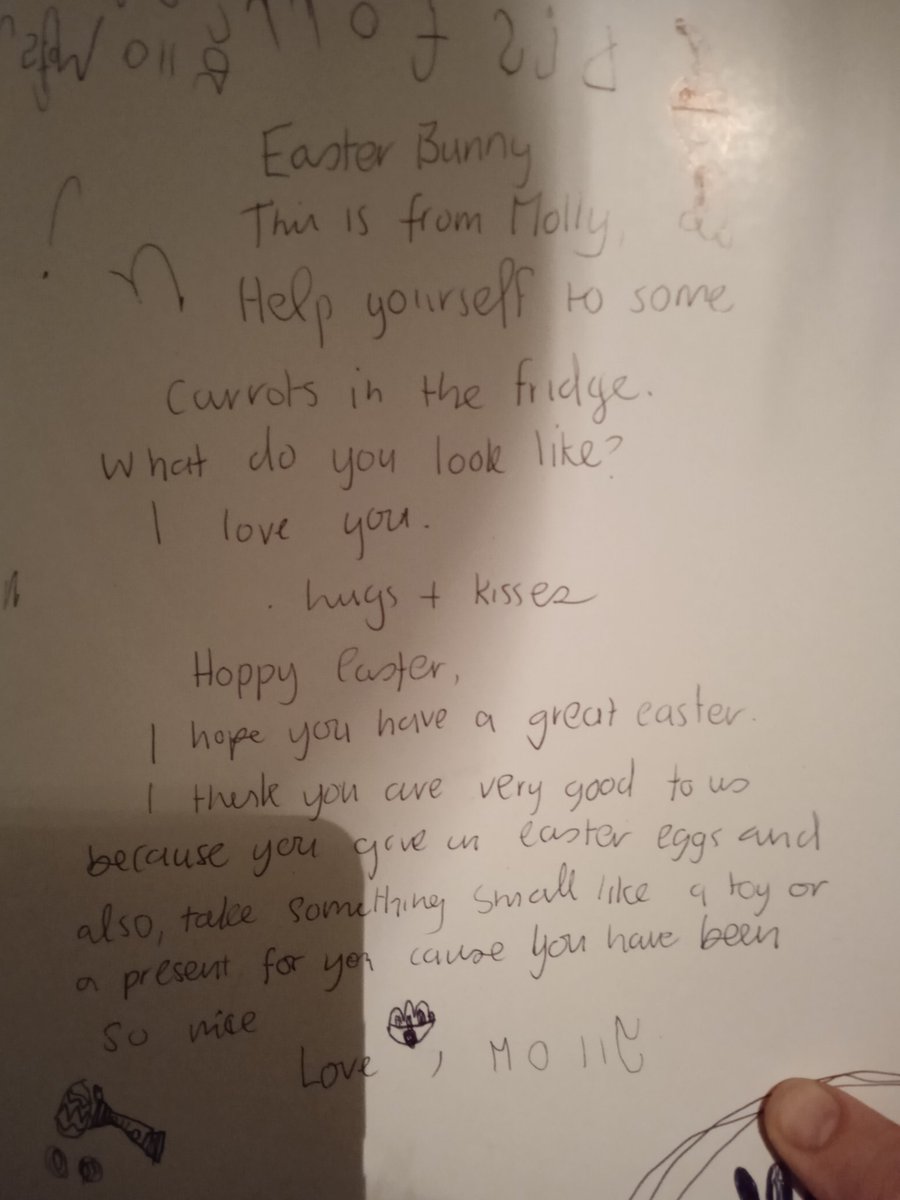 Easter Bunny
This is from Molly,
Help yourself to some
carrots in the fridge.
What do you look like?
I love you.
hugs + kisses
Hoppy Easter,
I hope you have a great easter.
I think you are very good to us
because you give us easter eggs and
also, take something small like a toy or
a present for you cause you have been
so nice
Love , MOllY